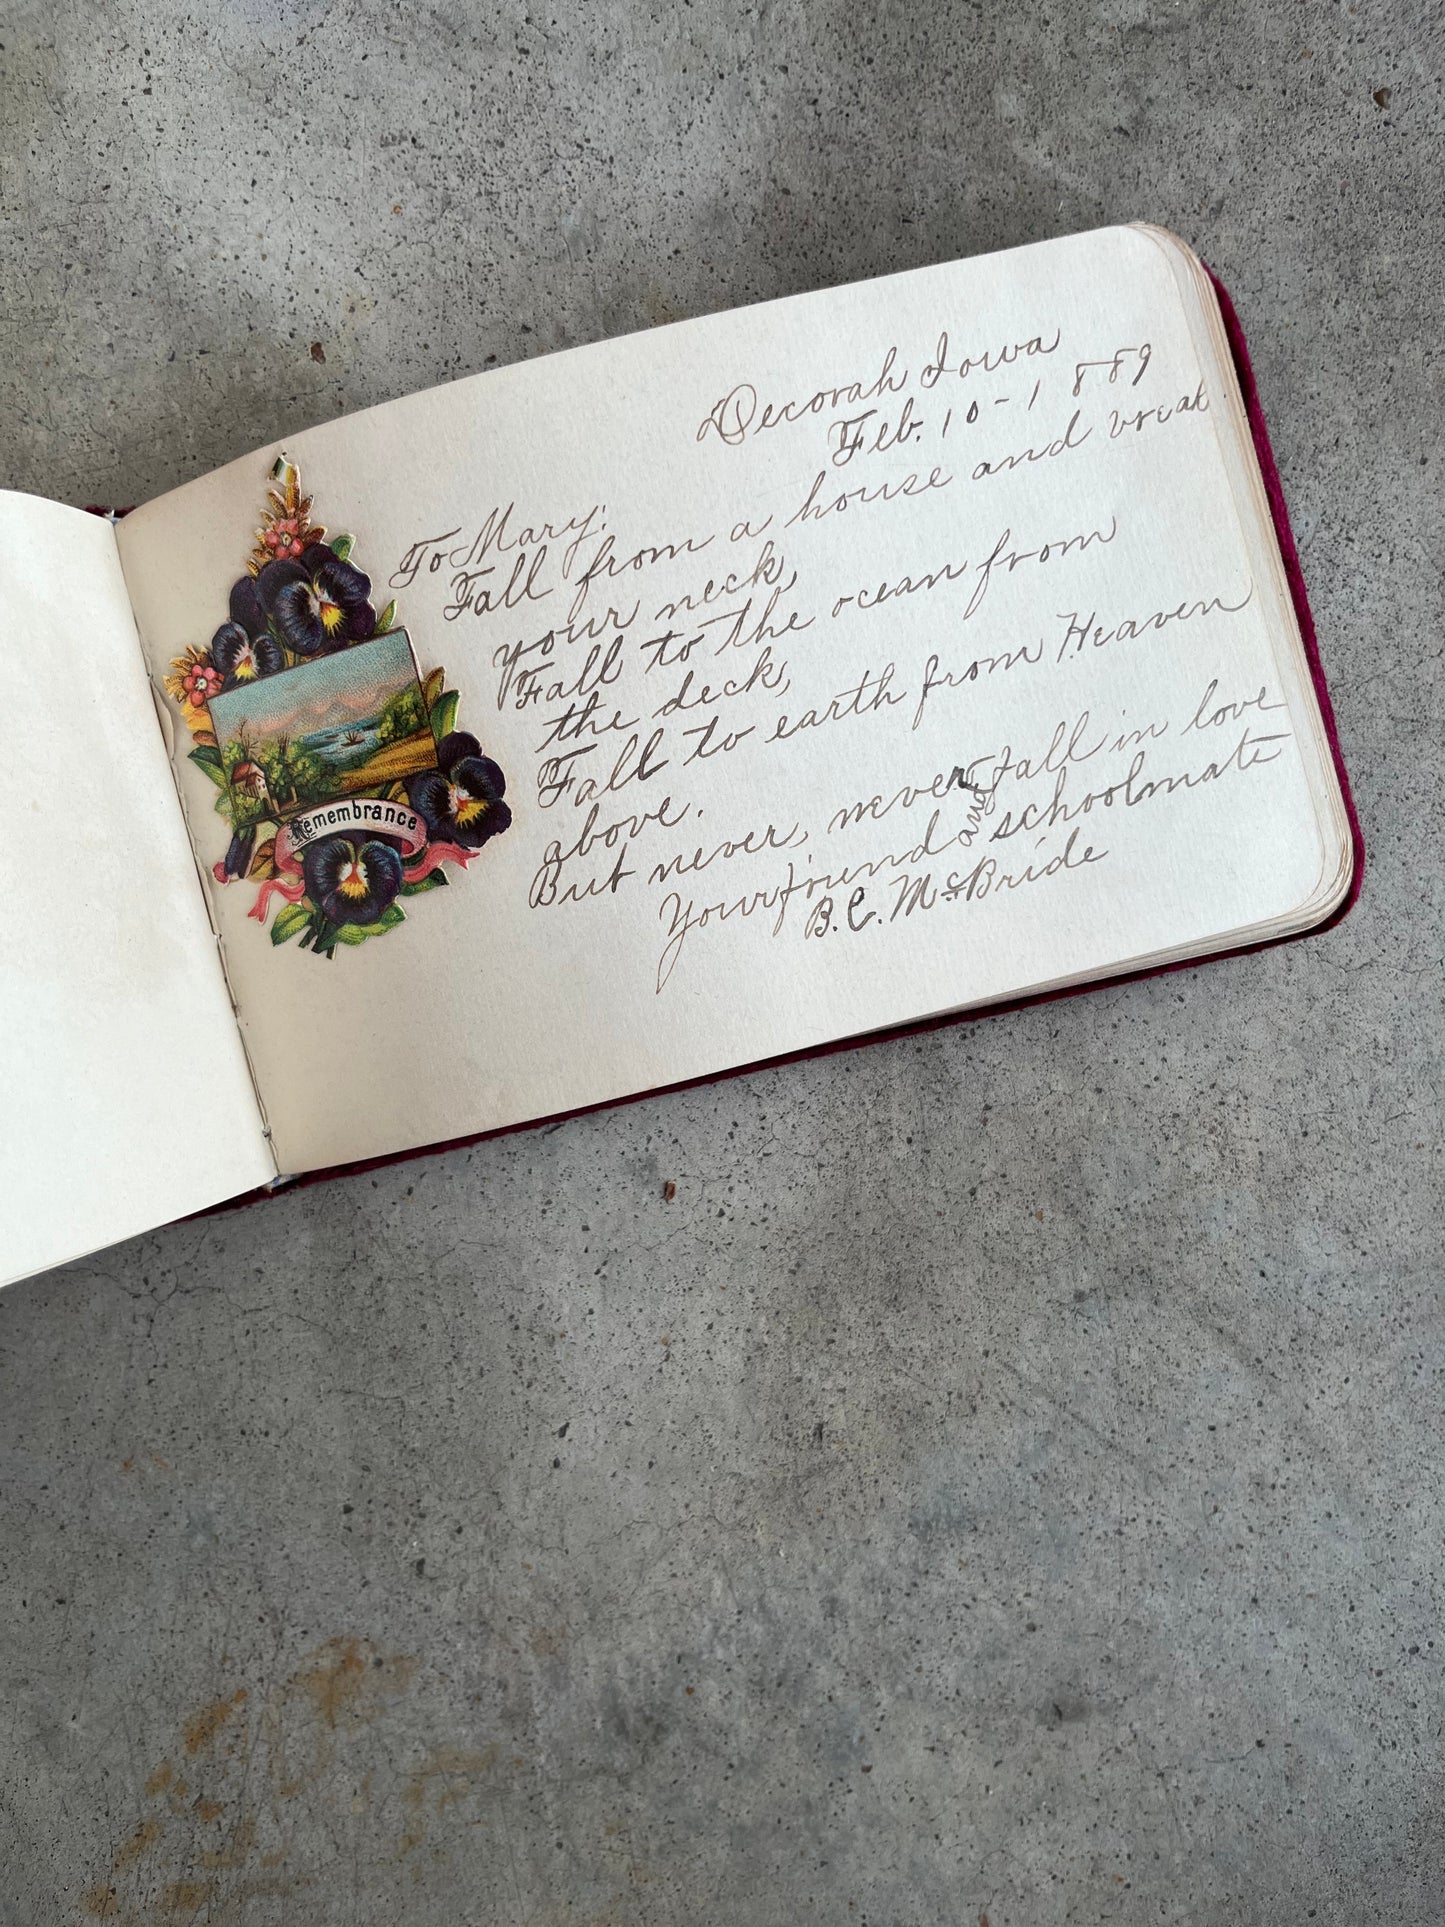 Remembrance
Decorah Iowa
Feb. 10-1889
To Mary:
Fall from a house and break
your neck,
Fall to the ocean from
the deck,
Fall to earth from Heaven
above.
But never, never fall in love
Your friend and schoolmate
B.C. McBride